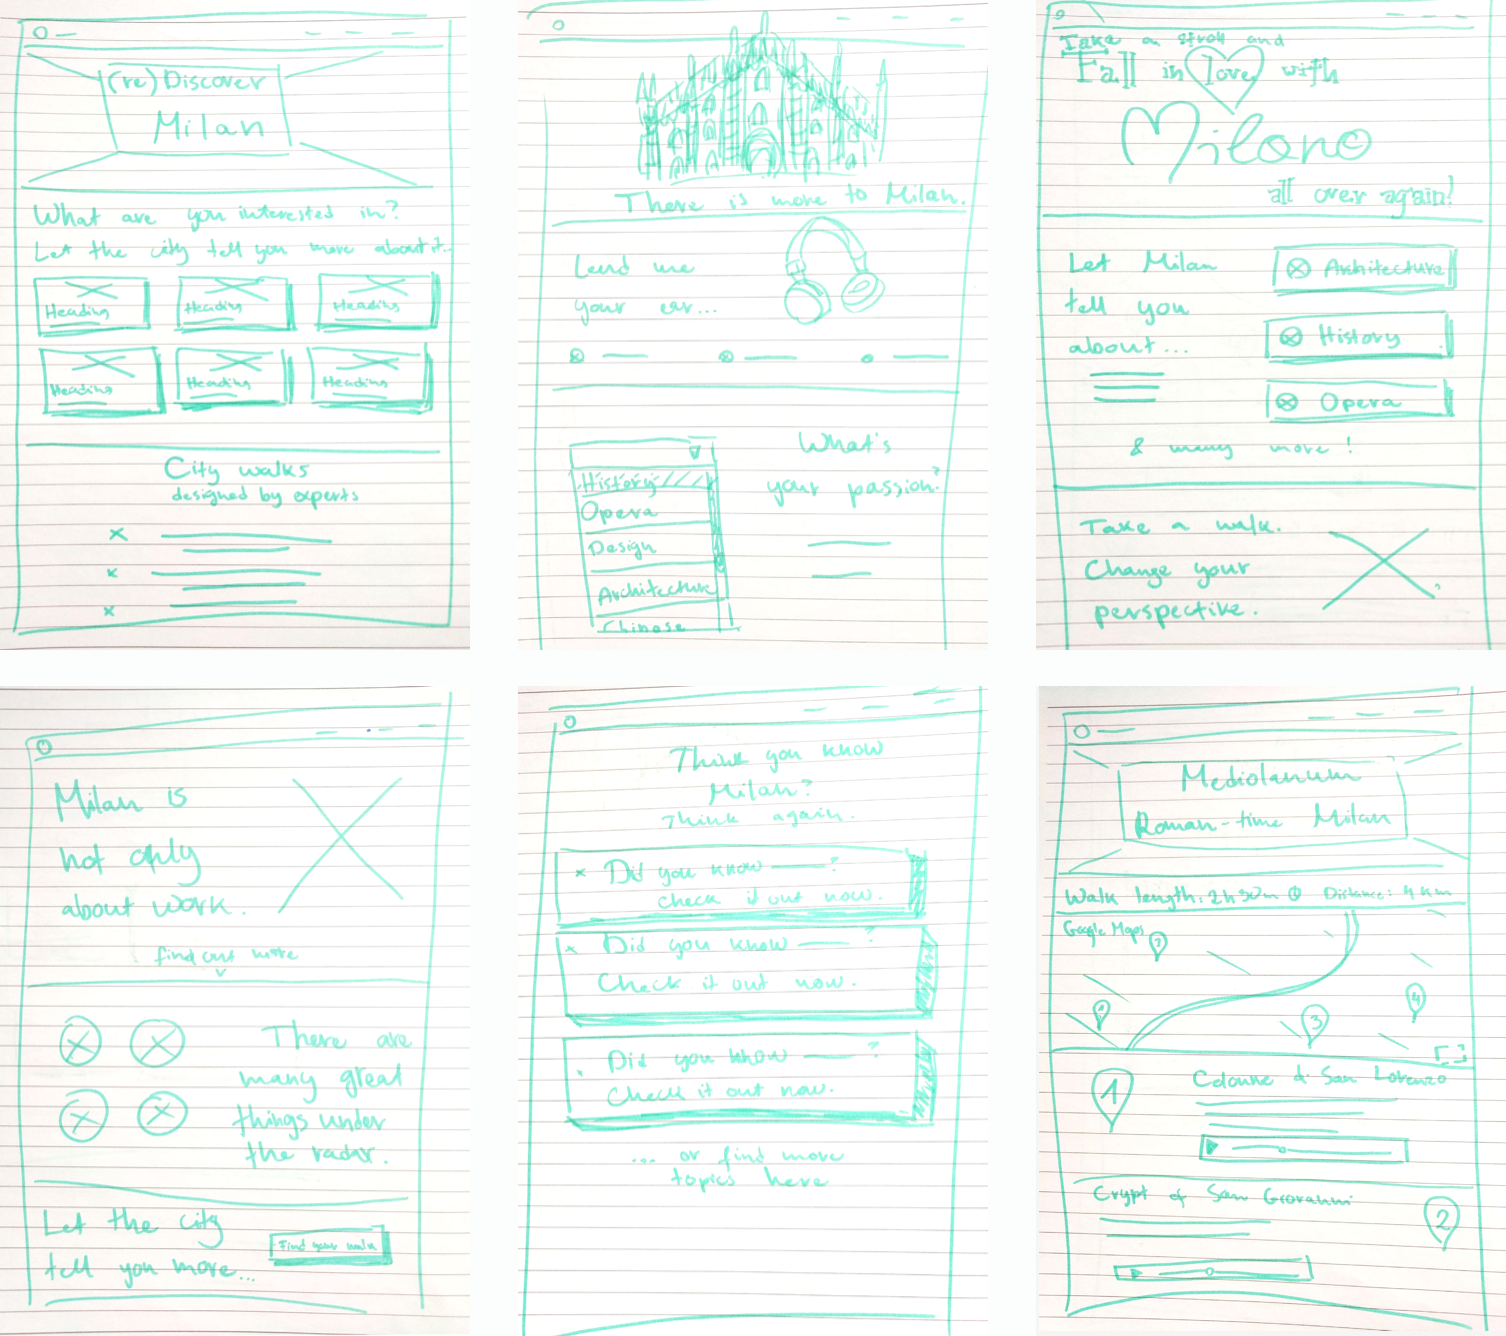 (re)Discover
Milan
What are you interested in?
Let the city tell you more about it...
Heading
Heading
Heading
Heading
Heading
Heading
City walks
designed by experts
There is more to Milan.
Lend me
your ear...
What's
your passion?
History
Opera
Design
Architecture
Chinese
Take a stroll and
Fall in love with
Milano
all over again!
Let Milan
tell you
about...
Architecture
History
Opera
& many more!
Take a walk.
Change your
perspective.
Milan is
not only
about work.
find out more
There are
many great
things under
the radar.
Let the city
tell you more...
Find your walk
Think you know
Milan?
Think again.
Did you know ?
check it out now.
Did you know ?
Check it out now.
Did you know ?
Check it out now.
... or find more
topics here
Mediolanum
Roman-time Milan
Walk length: 2h 30m Distance: 4 km
Google Maps
2
1
3
4
1
Colonne di San Lorenzo
Crypt of San Giovanni
2